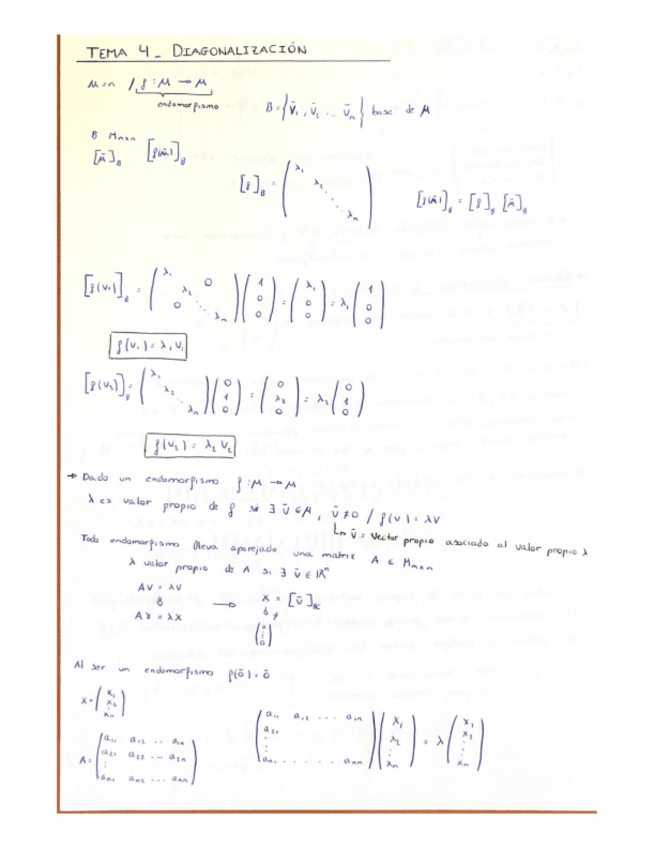 TEMA 4_ DIAGONALIZACIÓN
M en / f : M → M
endomorfismo
B = { v̄₁, v̄₂ ... v̄ₙ } base de M
B Mₙₓₙ
[ū]_B [f(ū)]_B
[f]_B = ( λ₁ λ₂ ⋱ λₙ )
[f(ū)]_B = [f]_B [ū]_B
[f(v₁)]_B = ( λ₁ λ₂ ⋱ λₙ 0 0 ) ( 1 0 0 ) = ( λ₁ 0 0 ) = λ₁ ( 1 0 0 )
f(v₁) = λ₁ v₁
[f(v₂)]_B = ( λ₁ λ₂ ⋱ λₙ ) ( 0 1 0 ) = ( 0 λ₂ 0 ) = λ₂ ( 0 1 0 )
f(v₂) = λ₂ v₂
→ Dado un endomorfismo f : M → M
λ es valor propio de f si ∃ v̄ ∈ M , v̄ ≠ 0 / f(v) = λv
↳ v̄ = Vector propio asociado al valor propio λ
Todo endomorfismo lleva aparejada una matriz A ∈ Mₙₓₙ
λ valor propio de A si ∃ v̄ ∈ ℝⁿ
Av = λv
Ax = λx
→ x = [v̄]
≠
( 0 ⋮ 0 )
Al ser un endomorfismo f(ō) = ō
x = ( x₁ x₂ ⋮ xₙ )
A = ( a₁₁ a₁₂ ... a₁ₙ a₂₁ a₂₂ ... a₂ₙ ⋮ aₙ₁ aₙ₂ ... aₙₙ )
( a₁₁ a₁₂ ... a₁ₙ a₂₁ ⋮ aₙ₁ ... aₙₙ ) ( x₁ x₂ ⋮ xₙ ) = λ ( x₁ x₂ ⋮ xₙ )